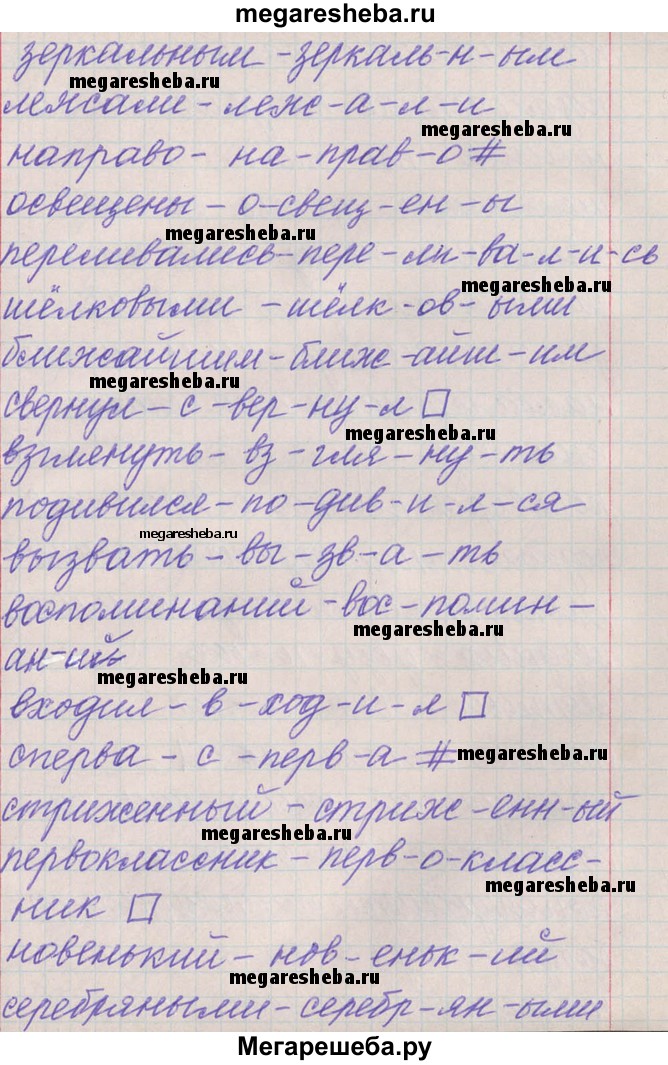 megaresheba.ru
зеркальным - зеркаль-н-ым
megaresheba.ru
лежали - леж-а-л-и
megaresheba.ru
направо - на-прав-о#
освещены - о-свещ-ен-ы
megaresheba.ru
переливались - пере-ли-ва-л-и-сь
megaresheba.ru
шёлковыми - шёлк-ов-ыми
ближайшим - ближ-айш-им
megaresheba.ru
свернул - с-вер-ну-л □
megaresheba.ru
взглянуть - вз-гля-ну-ть
подивился - по-див-и-л-ся
megaresheba.ru
вызвать - вы-зв-а-ть
megaresheba.ru
воспоминаний - вос-помин-
megaresheba.ru
ан-ий
megaresheba.ru
входил - в-ход-и-л □
сперва - с-перв-а #
megaresheba.ru
стриженный - стриж-енн-ый
megaresheba.ru
первоклассник - перв-о-класс-
megaresheba.ru
ник □
новенький - нов-еньк-ий
megaresheba.ru
серебряными - серебр-ян-ыми
Мегарешеба.ру